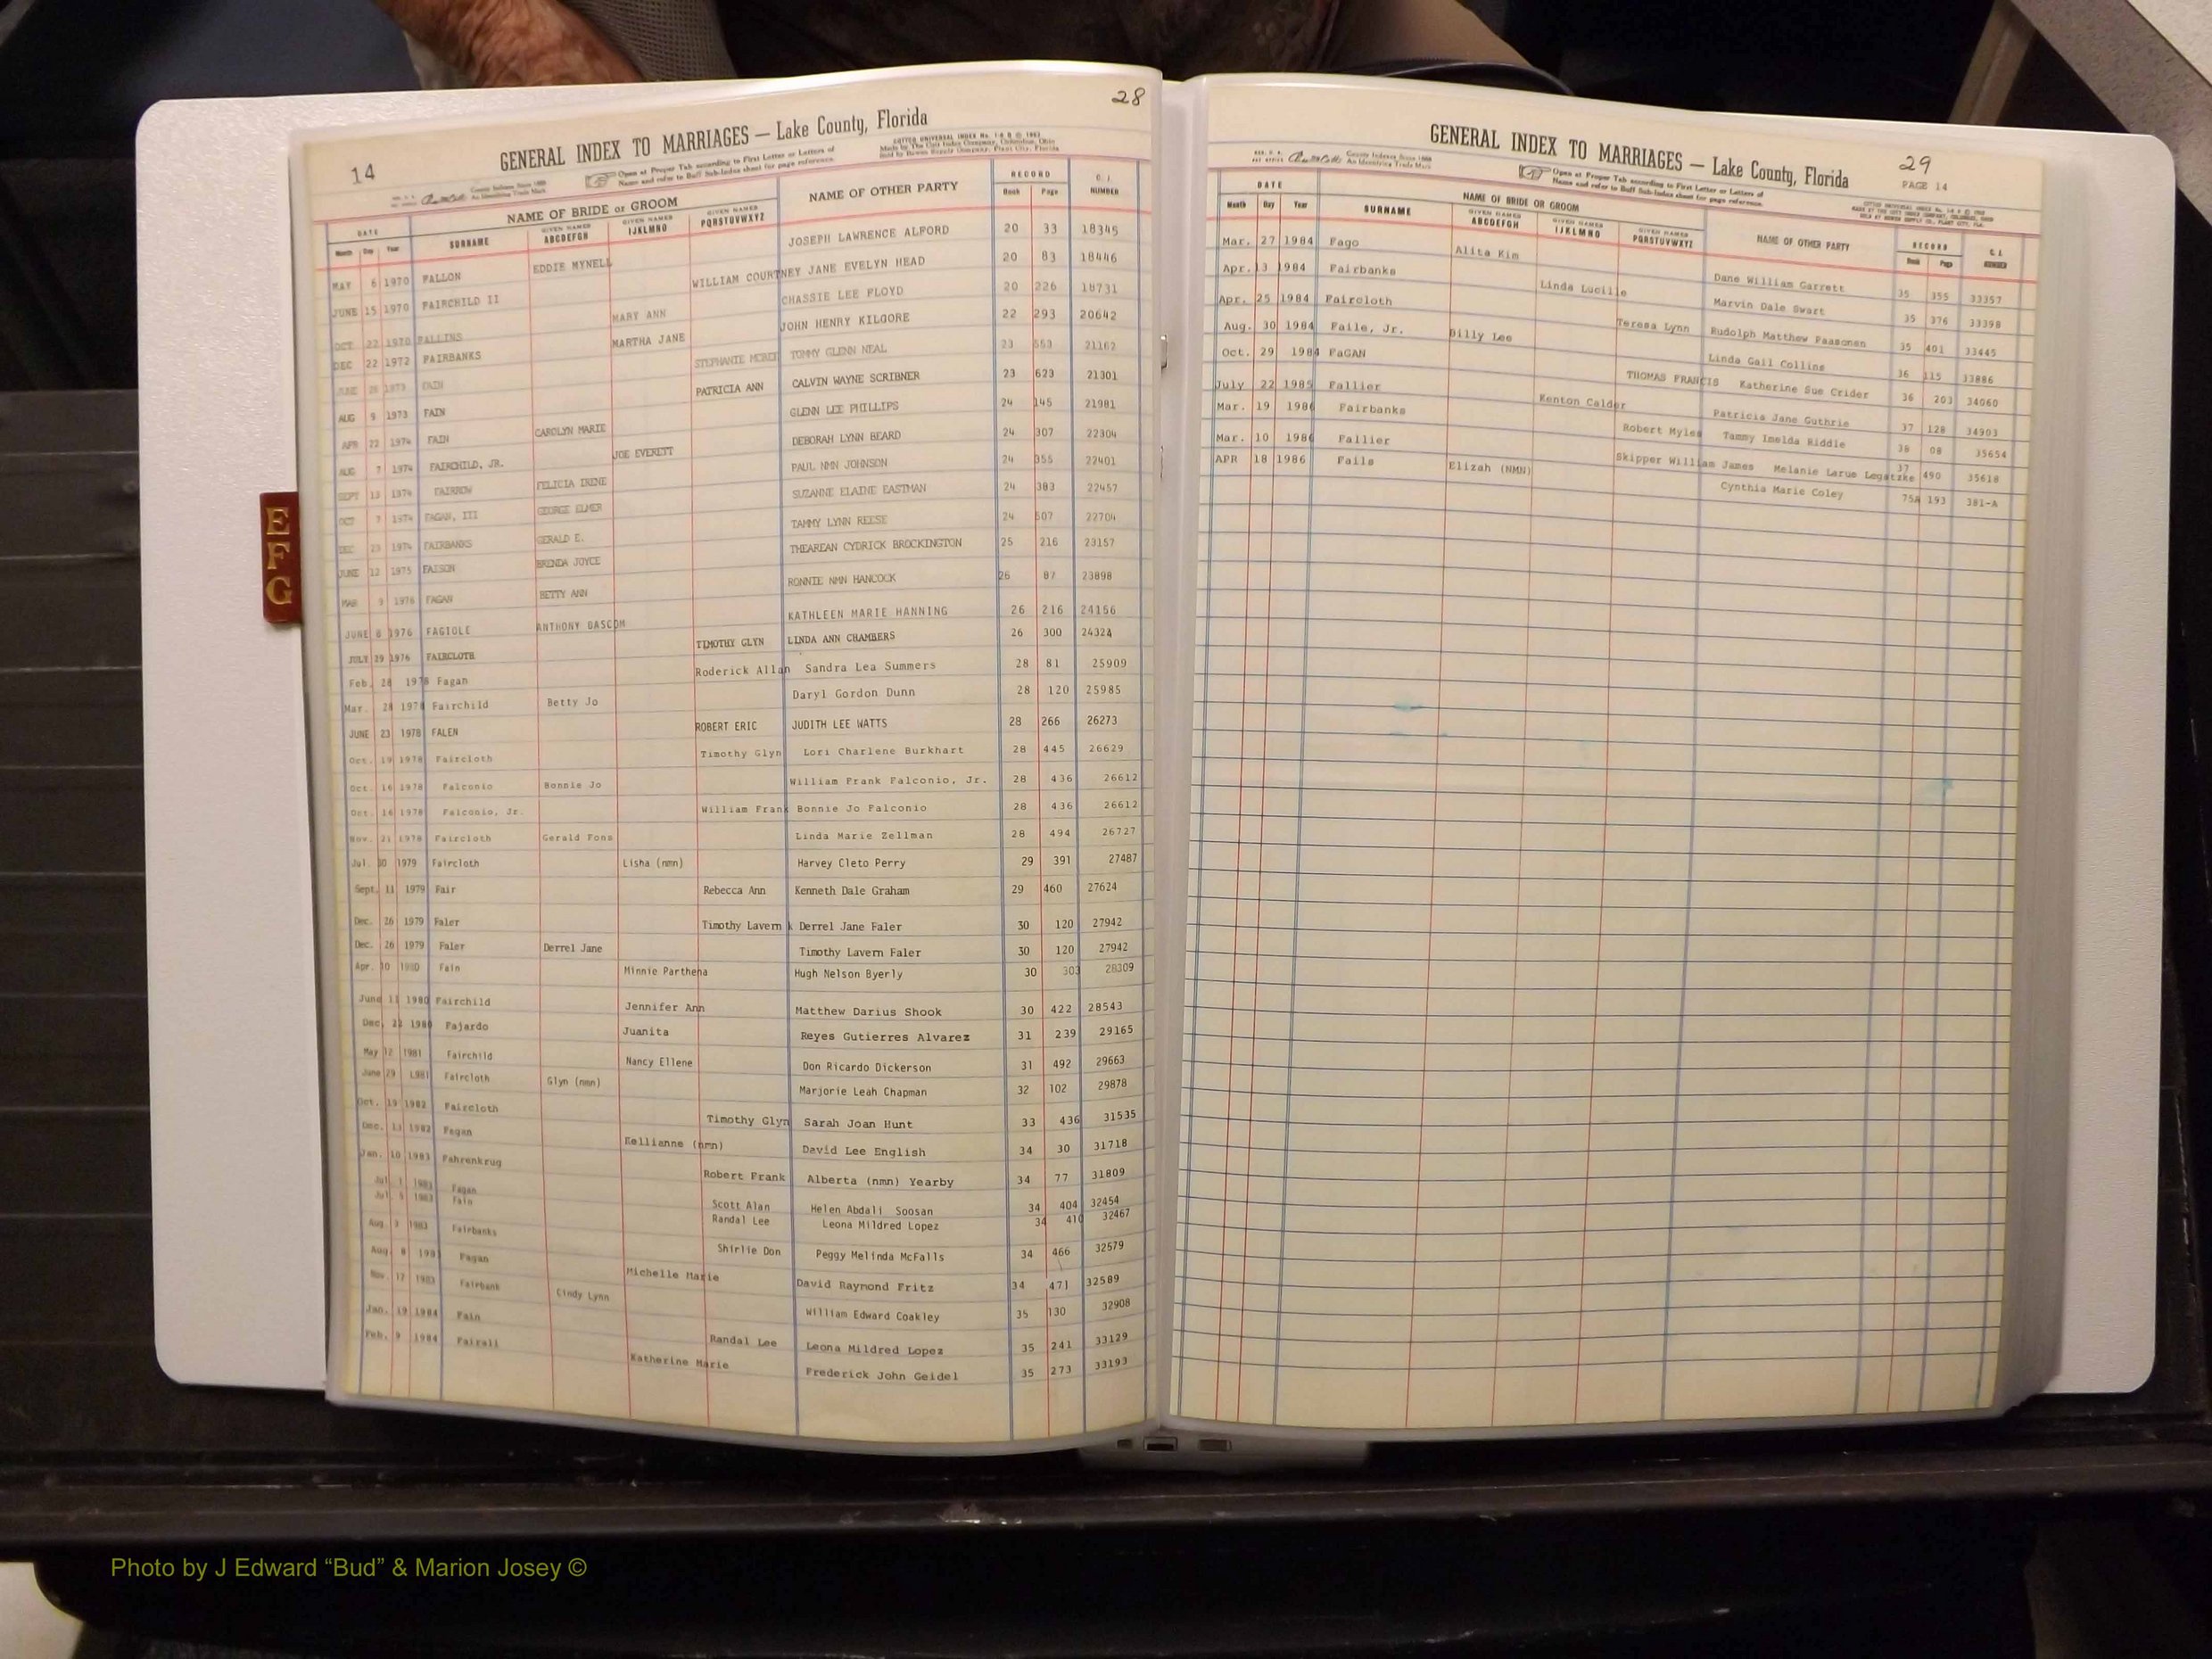 28
14
GENERAL INDEX TO MARRIAGES — Lake County, Florida
Open at Proper Tab according to First Letter or Letters of
Name and refer to Buff Sub-Index sheet for page reference.
DATE NAME OF BRIDE or GROOM NAME OF OTHER PARTY RECORD C. I. NUMBER
Month Day Year SURNAME GIVEN NAMES ABCDEFGH GIVEN NAMES IJKLMNO GIVEN NAMES PQRSTUVWXYZ Book Page
MAY 6 1970 FALLON EDDIE MYNELL JOSEPH LAWRENCE ALFORD 20 33 18345
JUNE 15 1970 FAIRCHILD II WILLIAM COURTNEY JANE EVELYN HEAD 20 83 18446
OCT 22 1970 FALLINS MARY ANN CHASSIE LEE FLOYD 20 226 18731
DEC 22 1972 FAIRBANKS MARTHA JANE JOHN HENRY KILGORE 22 293 20642
JUNE 26 1973 FAIN STEPHANIE TOMMY GLENN NEAL 23 553 21162
AUG 9 1973 FAIN PATRICIA ANN CALVIN WAYNE SCRIBNER 23 623 21301
APR 22 1974 FAIN CAROLYN MARIE GLENN LEE PHILLIPS 24 145 21981
AUG 7 1974 FAIRCHILD, JR. JOE EVERETT DEBORAH LYNN BEARD 24 307 22304
SEPT 13 1974 FAIRROW FELICIA IRENE PAUL NMN JOHNSON 24 355 22401
OCT 7 1974 FAGAN, III GEORGE ELMER SUZANNE ELAINE EASTMAN 24 383 22457
DEC 23 1974 FAIRBANKS GERALD E. TAMMY LYNN REESE 24 507 22704
JUNE 12 1975 FAISON BRENDA JOYCE THEAREAN CYDRICK BROCKINGTON 25 216 23157
MAR 9 1976 FAGAN BETTY ANN RONNIE NMN HANCOCK 26 87 23898
JUNE 8 1976 FAGIOLE ANTHONY DASCOM KATHLEEN MARIE HANNING 26 216 24156
JULY 29 1976 FAIRCLOTH TIMOTHY GLYN LINDA ANN CHAMBERS 26 300 24324
Feb. 28 1978 Fagan Roderick Allan Sandra Lea Summers 28 81 25909
Mar. 28 1978 Fairchild Betty Jo Daryl Gordon Dunn 28 120 25985
JUNE 23 1978 FALEN ROBERT ERIC JUDITH LEE WATTS 28 266 26273
Oct. 19 1978 Faircloth Timothy Glyn Lori Charlene Burkhart 28 445 26629
Oct. 16 1978 Falconio Bonnie Jo William Frank Falconio, Jr. 28 436 26612
Oct. 16 1978 Falconio, Jr. William Frank Bonnie Jo Falconio 28 436 26612
Nov. 21 1978 Faircloth Gerald Fons Linda Marie Zellman 28 494 26727
Jul. 30 1979 Faircloth Lisha (nmn) Harvey Cleto Perry 29 391 27487
Sept. 11 1979 Fair Rebecca Ann Kenneth Dale Graham 29 460 27624
Dec. 26 1979 Faler Timothy Lavern Derrel Jane Faler 30 120 27942
Dec. 26 1979 Faler Derrel Jane Timothy Lavern Faler 30 120 27942
Apr. 10 1980 Fain Minnie Parthena Hugh Nelson Byerly 30 303 28309
June 11 1980 Fairchild Jennifer Ann Matthew Darius Shook 30 422 28543
Dec. 22 1980 Fajardo Juanita Reyes Gutierres Alvarez 31 239 29165
May 12 1981 Fairchild Nancy Ellene Don Ricardo Dickerson 31 492 29663
June 29 1981 Faircloth Glyn (nmn) Marjorie Leah Chapman 32 102 29878
Oct. 19 1982 Faircloth Timothy Glyn Sarah Joan Hunt 33 436 31535
Dec. 13 1982 Fegan Kellianne (nmn) David Lee English 34 30 31718
Jan. 10 1983 Fahrenkrug Robert Frank Alberta (nmn) Yearby 34 77 31809
Jul 1 1983 Fagan Scott Alan Helen Abdali Soosan 34 404 32454
Jul. 5 1983 Fain Randal Lee Leona Mildred Lopez 34 410 32467
Aug. 3 1983 Fairbanks Shirlie Don Peggy Melinda McFalls 34 466 32579
Aug. 8 1983 Fagan Michelle Marie David Raymond Fritz 34 471 32589
Nov. 17 1983 Fairbank Cindy Lynn William Edward Coakley 35 130 32908
Jan. 19 1984 Fain Randal Lee Leona Mildred Lopez 35 241 33129
Feb. 9 1984 Fairall Katherine Marie Frederick John Geidel 35 273 33193
E
F
G
GENERAL INDEX TO MARRIAGES — Lake County, Florida
29
PAGE 14
Open at Proper Tab according to First Letter or Letters of
Name and refer to Buff Sub-Index sheet for page reference.
DATE NAME OF BRIDE OR GROOM NAME OF OTHER PARTY RECORD C. I.
Month Day Year SURNAME GIVEN NAMES ABCDEFGH GIVEN NAMES IJKLMNO GIVEN NAMES PQRSTUVWXYZ Book Page NUMBER
Mar. 27 1984 Fago Alita Kim Dane William Garrett 35 355 33357
Apr. 13 1984 Fairbanks Linda Lucille Marvin Dale Swart 35 376 33398
Apr. 25 1984 Faircloth Teresa Lynn Rudolph Matthew Paasonen 35 401 33445
Aug. 30 1984 Faile, Jr. Billy Lee Linda Gail Collins 36 115 33886
Oct. 29 1984 FaGAN THOMAS FRANCIS Katherine Sue Crider 36 203 34060
July 22 1985 Fallier Kenton Calder Patricia Jane Guthrie 37 128 34903
Mar. 19 1986 Fairbanks Robert Myles Tammy Imelda Riddle 38 08 35654
Mar. 10 1986 Fallier Skipper William James Melanie Larue Legatzke 37 490 35618
APR 18 1986 Fails Elizah (NMN) Cynthia Marie Coley 75A 193 381-A
Photo by J Edward “Bud” & Marion Josey ©